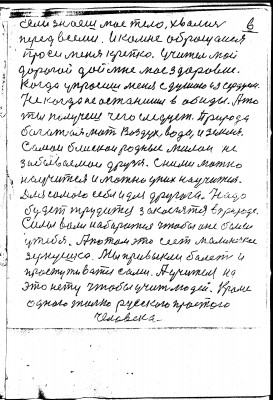 6
если знаеш мое тело, хвались
перед всеми. И ко мне обращайся
Проси меня крепко. Учитель мой
дорогой дай мне мое здоровие.
Когда упросиш меня с думаю и с сердцем.
Не когда не останиш в обиды. А то
ты получиш чего следует. Природа
богатая мать воздух, вода, и земля.
Самои близкои родные милаи не
забываемаи друзя. С ними можно
научится и можно у них научится.
Для самого себя и для другога. Надо
будет трудится закоснятся в природе.
Силы вами набератся чтобы оне были
у тебя. А потом это сеет маминькае
зернушко. Мы привыкли балеть и
простуживатся сами. А учителя на
это нету чтобы учит людей. Кроме
одного только русского простого
человека.